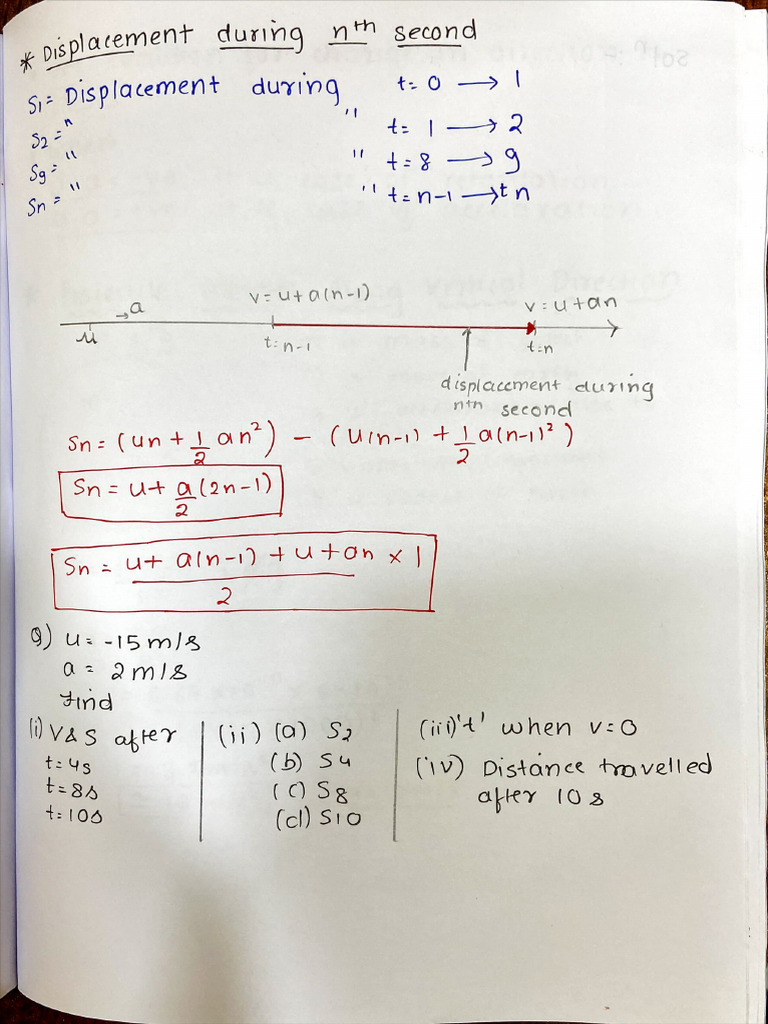 * Displacement during nth second
S1 = Displacement during t = 0 → 1
S2 = " " t = 1 → 2
S9 = " " t = 8 → 9
Sn = " " t = n-1 → tn
→a
v = u + a(n-1)
v = u + an
u
t = n-1
t = n
displacement during
nth second
Sn = (un + 1/2 an²) - (u(n-1) + 1/2 a(n-1)²)
Sn = u + a/2 (2n-1)
Sn = (u + a(n-1) + u + an)/2 × 1
Q) u = -15 m/s
a = 2 m/s
Find
(i) V & S after
t = 4s
t = 8s
t = 10s
(ii) (a) S2
(b) S4
(c) S8
(d) S10
(iii) 't' when v = 0
(iv) Distance travelled
after 10 s